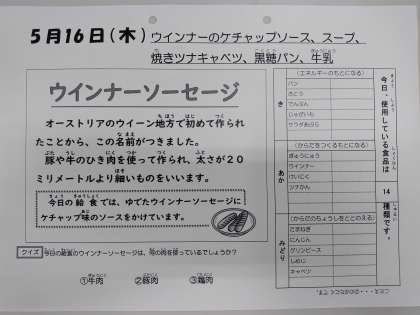 5月16日(木) ウインナーのケチャップソース、スープ、
焼きツナキャベツ、黒糖パン、牛乳
ウインナーソーセージ
オーストリアのウイーン地方で初めて作られ
たことから、この名前がつきました。
豚や牛のひき肉を使って作られ、太さが20
ミリメートルより細いものをいいます。
今日の給食では、ゆでたウインナーソーセージに
ケチャップ味のソースをかけています。
クイズ 今日の給食のウインナーソーセージは、何の肉を使っているでしょうか?
①牛肉 ②豚肉 ③鶏肉
今日、使用している食品は 14 種類です。
き
(エネルギーのもとになる)
パン
さとう
でんぷん
じゃがいも
サラダあぶら
あか
(からだをつくるもとになる)
ぎゅうにゅう
ウインナー
けいにく
ツナかん
みどり
(からだのちょうしをととのえる)
たまねぎ
にんじん
グリンピース
しめじ
キャベツ